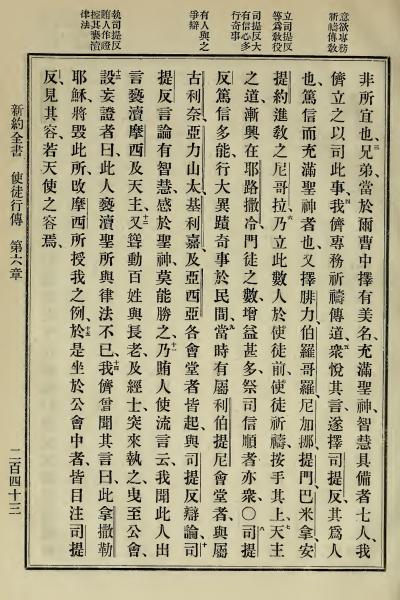 意欲專務
祈禱傳教
立司提反
等爲教役
司提反大
有信心多
行奇事
有人與之
爭辯
執司提反
賄人作證
控其褻瀆
律法
非所宜也、三兄弟當於爾曹中擇有美名、充滿聖神智慧具備者七人、我
儕立之以司此事、四我儕專務祈禱傳道、五衆悅其言、遂擇司提反、其爲人
也、篤信而充滿聖神者也、又擇腓力伯羅哥羅、尼加挪、提門、巴米拿、安
提約進教之尼哥拉、六乃立此數人於使徒前、使徒祈禱、按手其上、七天主
之道漸興、在耶路撒冷門徒之數增益甚多、祭司信順者亦衆、○八司提
反篤信多能、行大異蹟奇事於民間、九當時有屬利伯提尼會堂者、與屬
古利奈、亞力山太、基利嘉、及亞西亞各會堂者、皆起、與司提反辯論、十司
提反言論有智慧、感於聖神、莫能勝之、十一乃賄人使流言云、我聞此人出
言褻瀆摩西及天主、十二又聳動百姓與長老及經士、突來執之、曳至公會、
十三設妄證者曰、此人褻瀆聖所與律法不已、十四我儕嘗聞其言曰、此拿撒勒
耶穌將毀此所、改摩西所授我之例、十五於是坐於公會中者、皆目注司提
反、見其容若天使之容焉、
新約全書 使徒行傳 第六章 二百四十三